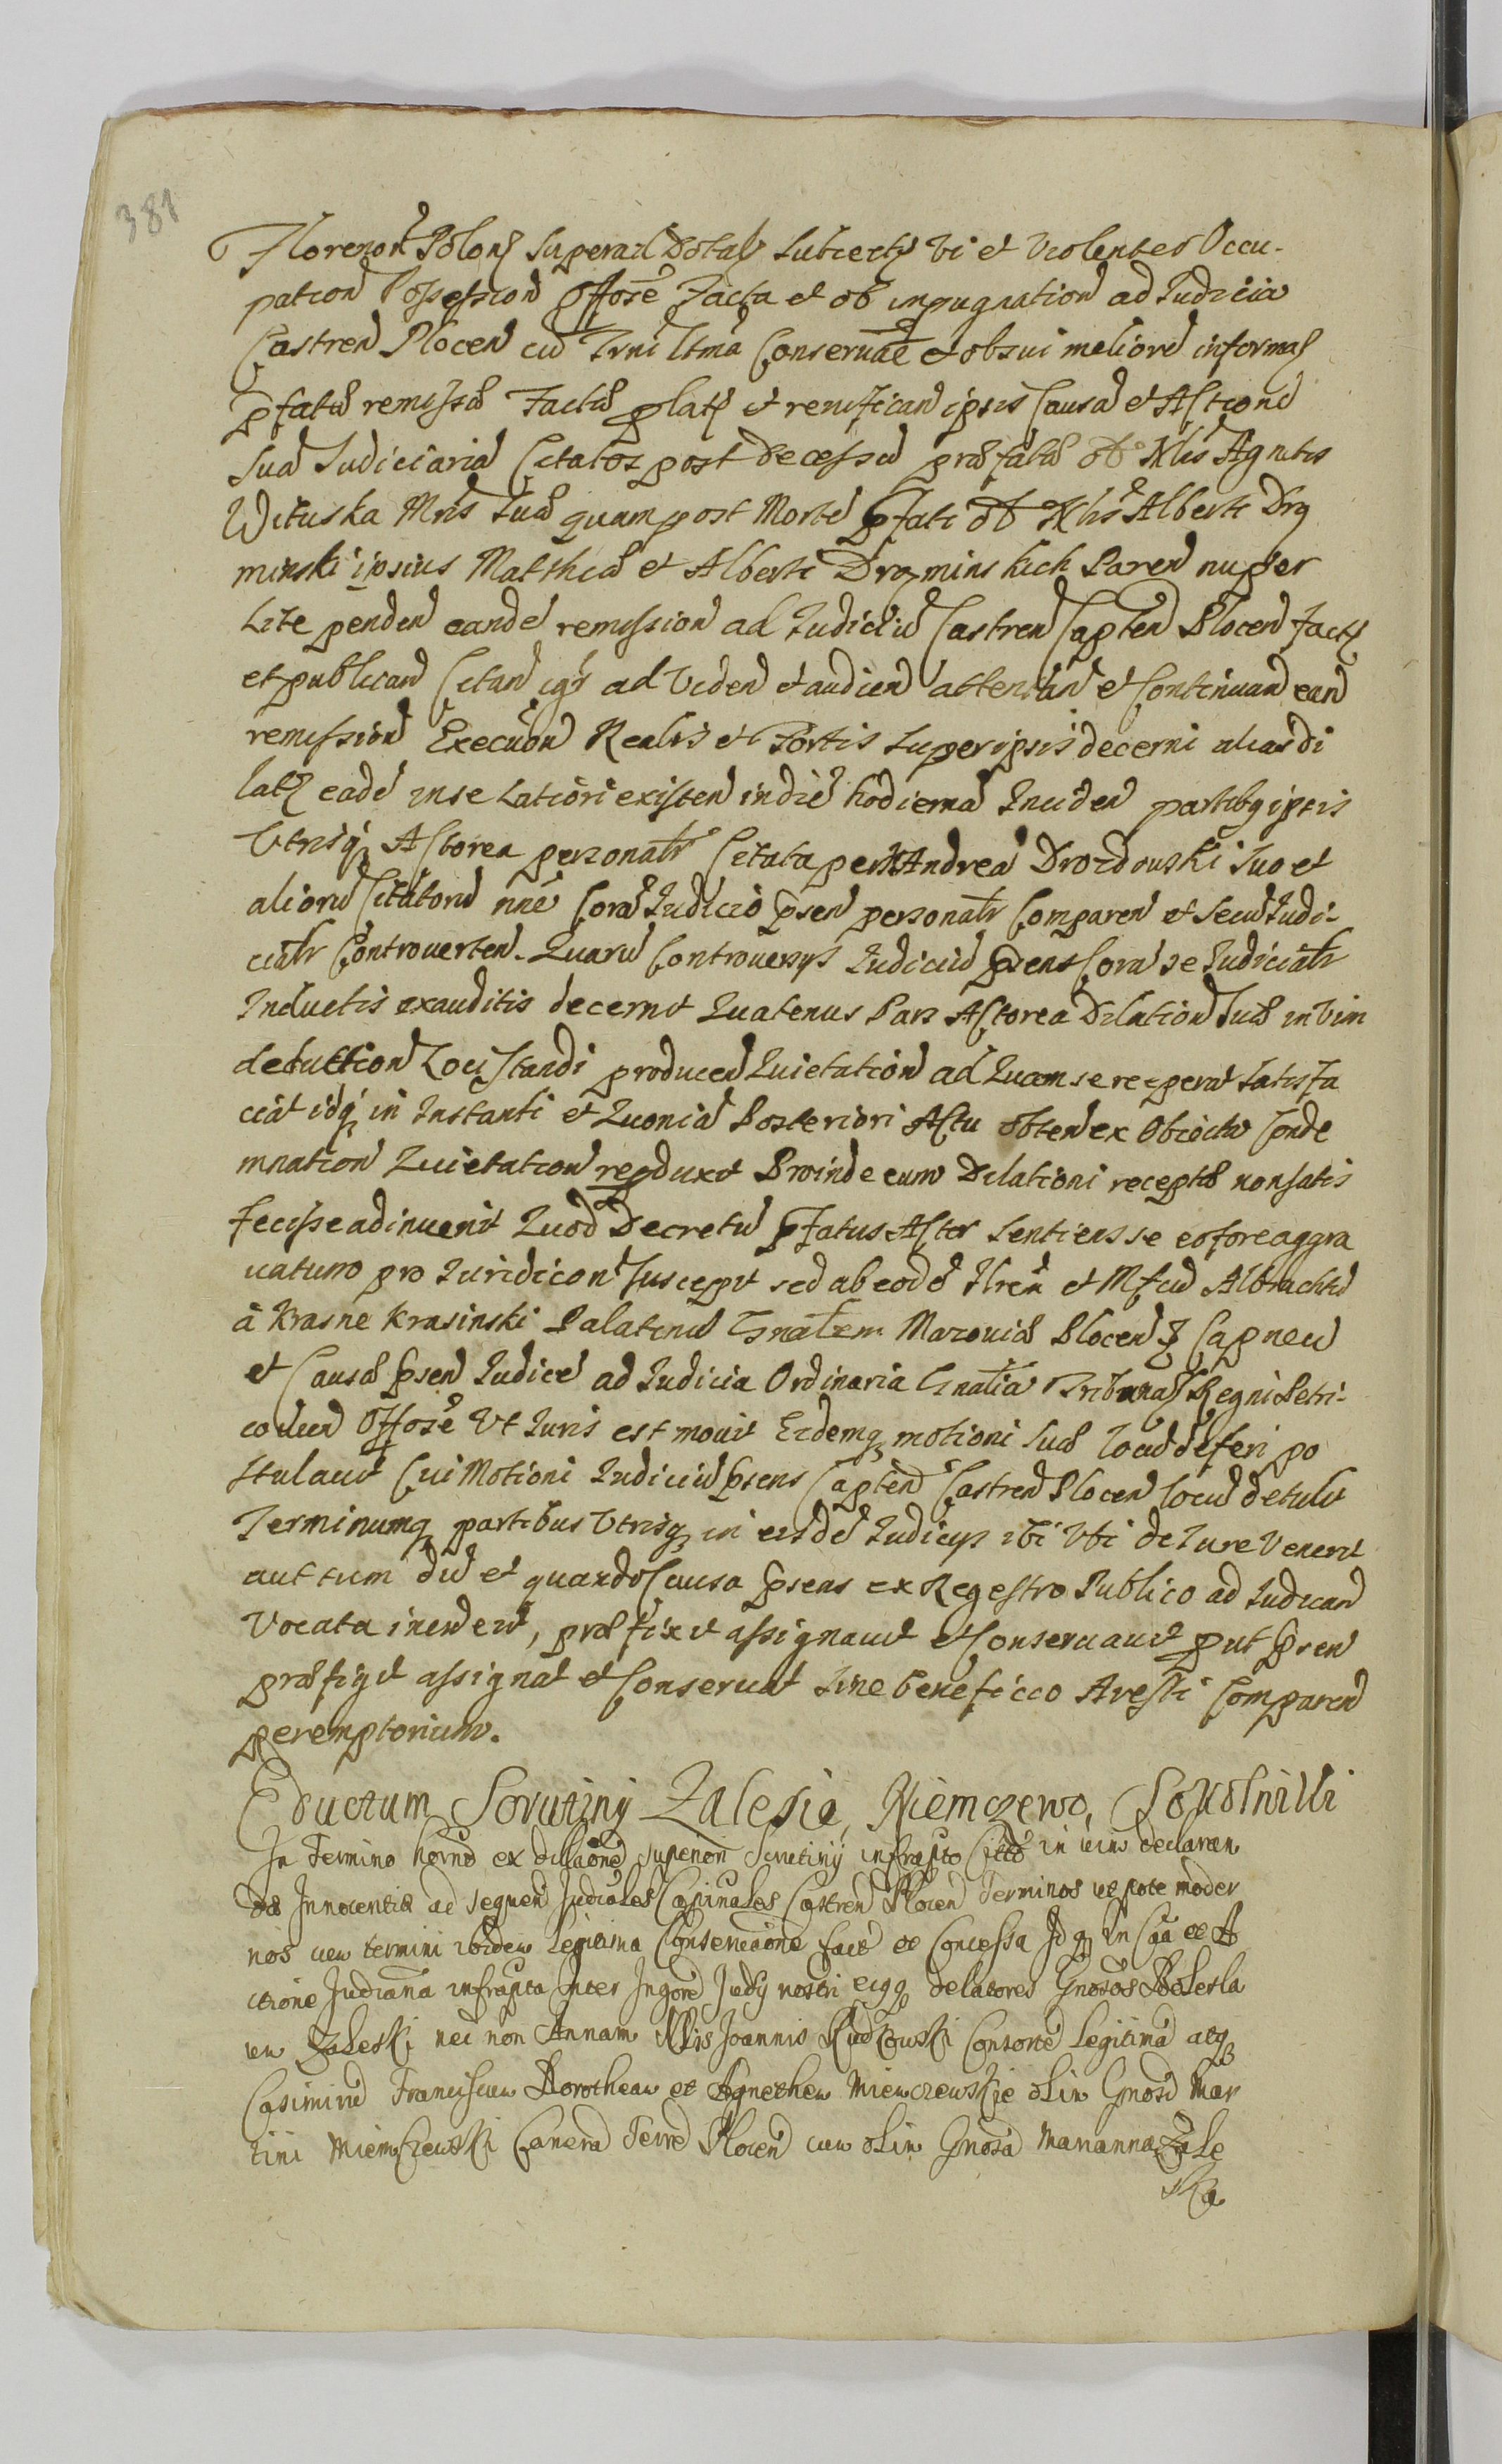 381
Florenor Polon superad Dotal Subiect vi et violenter Occu-
pation Possession Oppose Facta et ob inpugnation ad Iudicia
Castren Plocen cu Trni ltma Conseruae et obsui meliore informa
pfata remissa Facta plat et reuificand ipsis Causa et Actione
sua Iudiciaria Citatos post Decessu præfatæ ol Nlis Agnetis
Wituska Mris suæ quam post Morte pfati ol Nlis Alberti Drg
minski ipsius Matthia et Alberti Drgminskich Paren nuper
Lite penden eande remission ad Iudiciu Castren Capten Plocen fact
et publican Citan igr ad Viden et audien attentan et Continuan ean
remission Execuon Realis et Fortis super ipsis decerni aliasdi
lat eade inse latiori existen indie hodierna Inciden partibq ipsis
Utrisq Actorea personalr Citata per N Andrea Drozdouski suo et
alioru Citatoru nne Cora Iudicio psen personalr Comparen et secu Iudi-
cialr Controuerten. Quaru Controuersys Iudiciu psens Cora se Iudicialr
Inductis exauditis decernit Quatenus Pars Actorea Dilation suæ in vim
deduction Loci standi producen Quietation ad Quam se receperat satisfa
ciat idq in Instanti et Quonia Posteriori Actu obten ex Obiecta Conde
mnation Quietation reproduxit Proinde eum Dilationi receptæ non satis
fecisse adinuenit Quod Decretu pfatus Actor Sentiens se eo fore aggra
uatum pro Iuridicon suscepit sed ab eode Ilrem et Mfcu Albrachtu
à Krasne Krasinski Palatinu Gnalem Mazouiæ Plocen Z Capneu
et Causæ psen Iudice ad Iudicia Ordinaria Gnalia Tribunal Regni Petri-
couien Oppose Vt Iuris est mouit Eidemq motioni suæ locu deferi po
stulauit Cui Motioni Iudiciu psens Capten Castren Plocen locu detulit
Terminumq partibus Utrisq in eisde Iudicys ibi Vbi de Iure Venerit
aut tum du et quando Causa psens ex Regestro Publico ad Iudican
Vocata inciderit, præfixit assignauit et Conseruauit put psen
præfigit assignat et Conseruat sine beneficio Aresti Comparen
peremptorium.
Eductum Scrutiny Zalesie, Niemczewo,
In Termino horno ex dilaone superiori Scrutinij infrapto Citto in vim declaran
dæ Innocentiæ ad sequen Judiciales Capinales Castren Plocen Terminos ut pote moder
nos cum termini ibidem legitima Conseruaone fact et Concessa Idq In Caa et A
ctione Judiaria infrapta Inter Ingore Judy nostri eiqq delatores Gnosos Bolesla
um Zaleski nec non Annam Nlis Joannis Rudkowski Consorte legitima atq
Casimiru Franciscum Dorotheam et Agnethem Miemczewskie olim Gnosi Mar
tini Miemczewski Camera Terre Plocen cum olim Gnosa Marianna Zale
ska